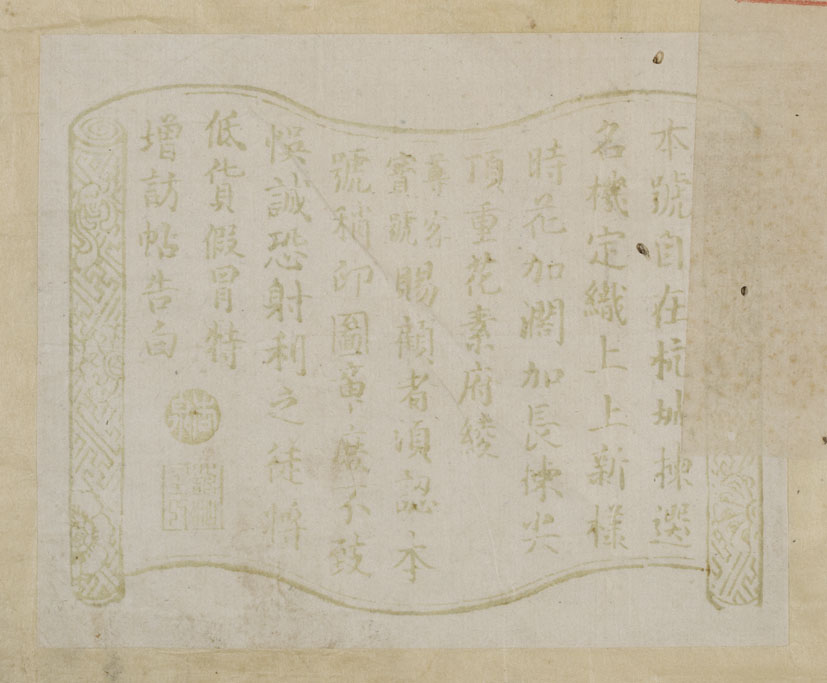 本號自在杭城揀選
名機定織上上新樣
時花加濶加長揀尖
頂重花素府綾
尊客
寶號
賜顧者須認本
號稍印圖書庶不致
悞誠恐射利之徒將
低貨假冒特
增訪帖告白